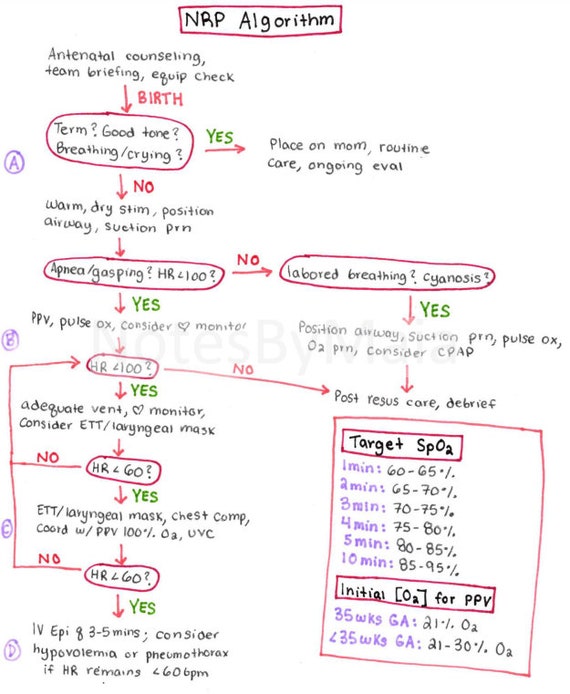 NRP Algorithm
Antenatal counseling,
team briefing, equip check
BIRTH
Term? Good tone?
Breathing/crying?
YES
Place on mom, routine
care, ongoing eval
A
NO
warm, dry stim, position
airway, suction prn
Apnea/gasping? HR<100?
NO
labored breathing? cyanosis?
YES
YES
PPV, pulse ox, consider ♡ monitor
Position airway, suction prn, pulse ox,
O2 prn, consider CPAP
NotesByMaia
B
HR<100?
NO
YES
Post resus care, debrief
adequate vent, ♡ monitor,
consider ETT/laryngeal mask
NO
HR<60?
YES
ETT/laryngeal mask, chest comp,
coord w/ PPV 100% O2, UVC
C
NO
HR<60?
YES
IV Epi q 3-5mins; consider
hypovolemia or pneumothorax
if HR remains <60bpm
D
Target SpO2
1min: 60-65%
2min: 65-70%
3min: 70-75%
4min: 75-80%
5min: 80-85%
10min: 85-95%
Initial [O2] for PPV
35wks GA: 21% O2
<35wks GA: 21-30% O2